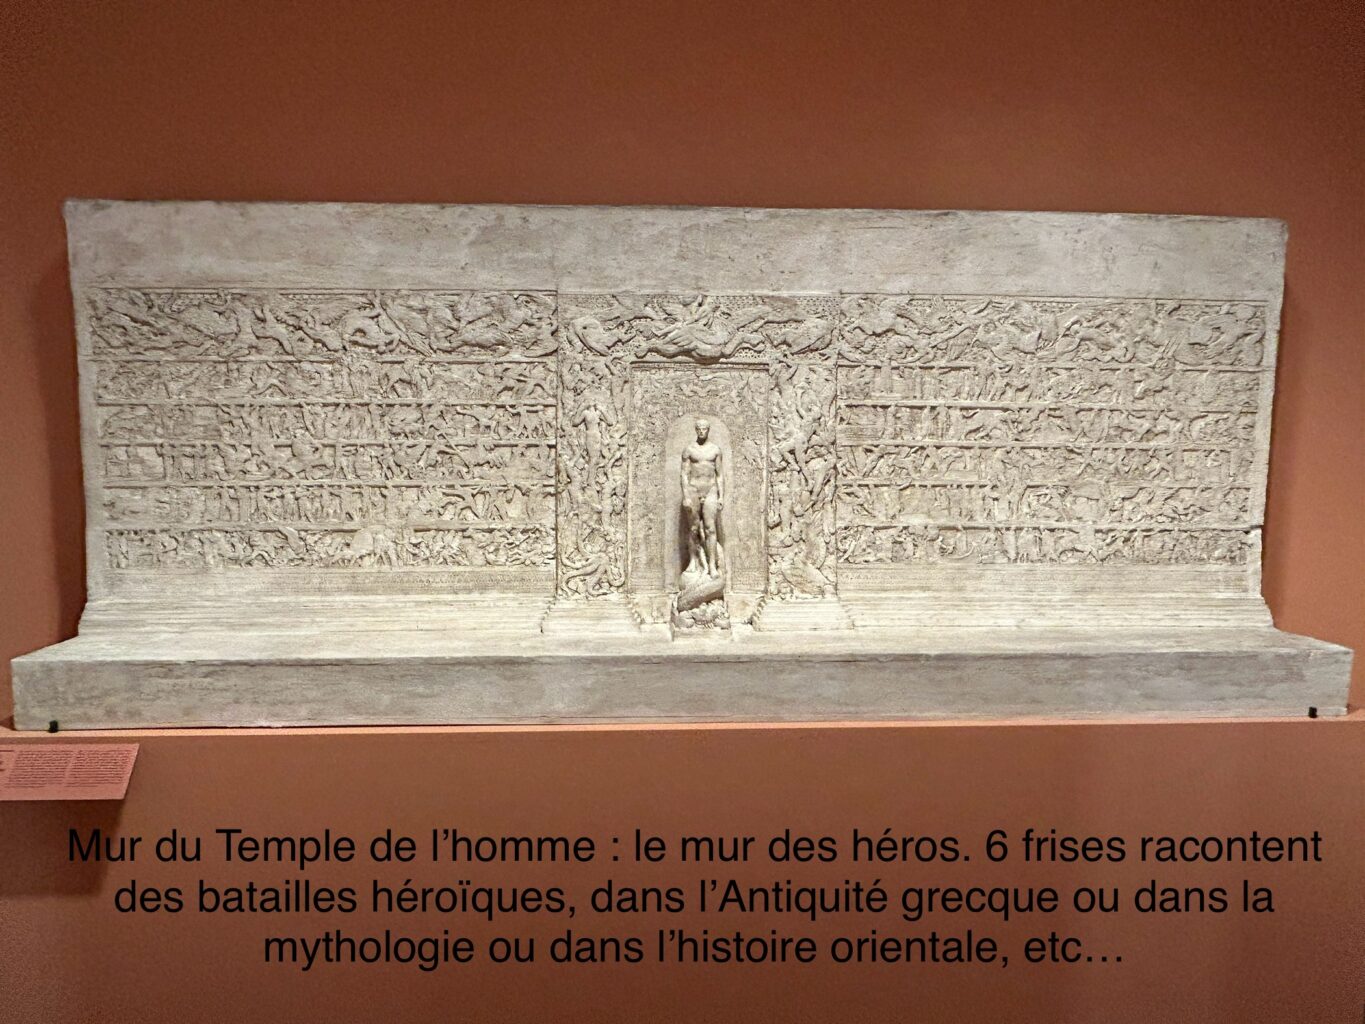 Mur du Temple de l’homme : le mur des héros. 6 frises racontent
des batailles héroïques, dans l’Antiquité grecque ou dans la
mythologie ou dans l’histoire orientale, etc…